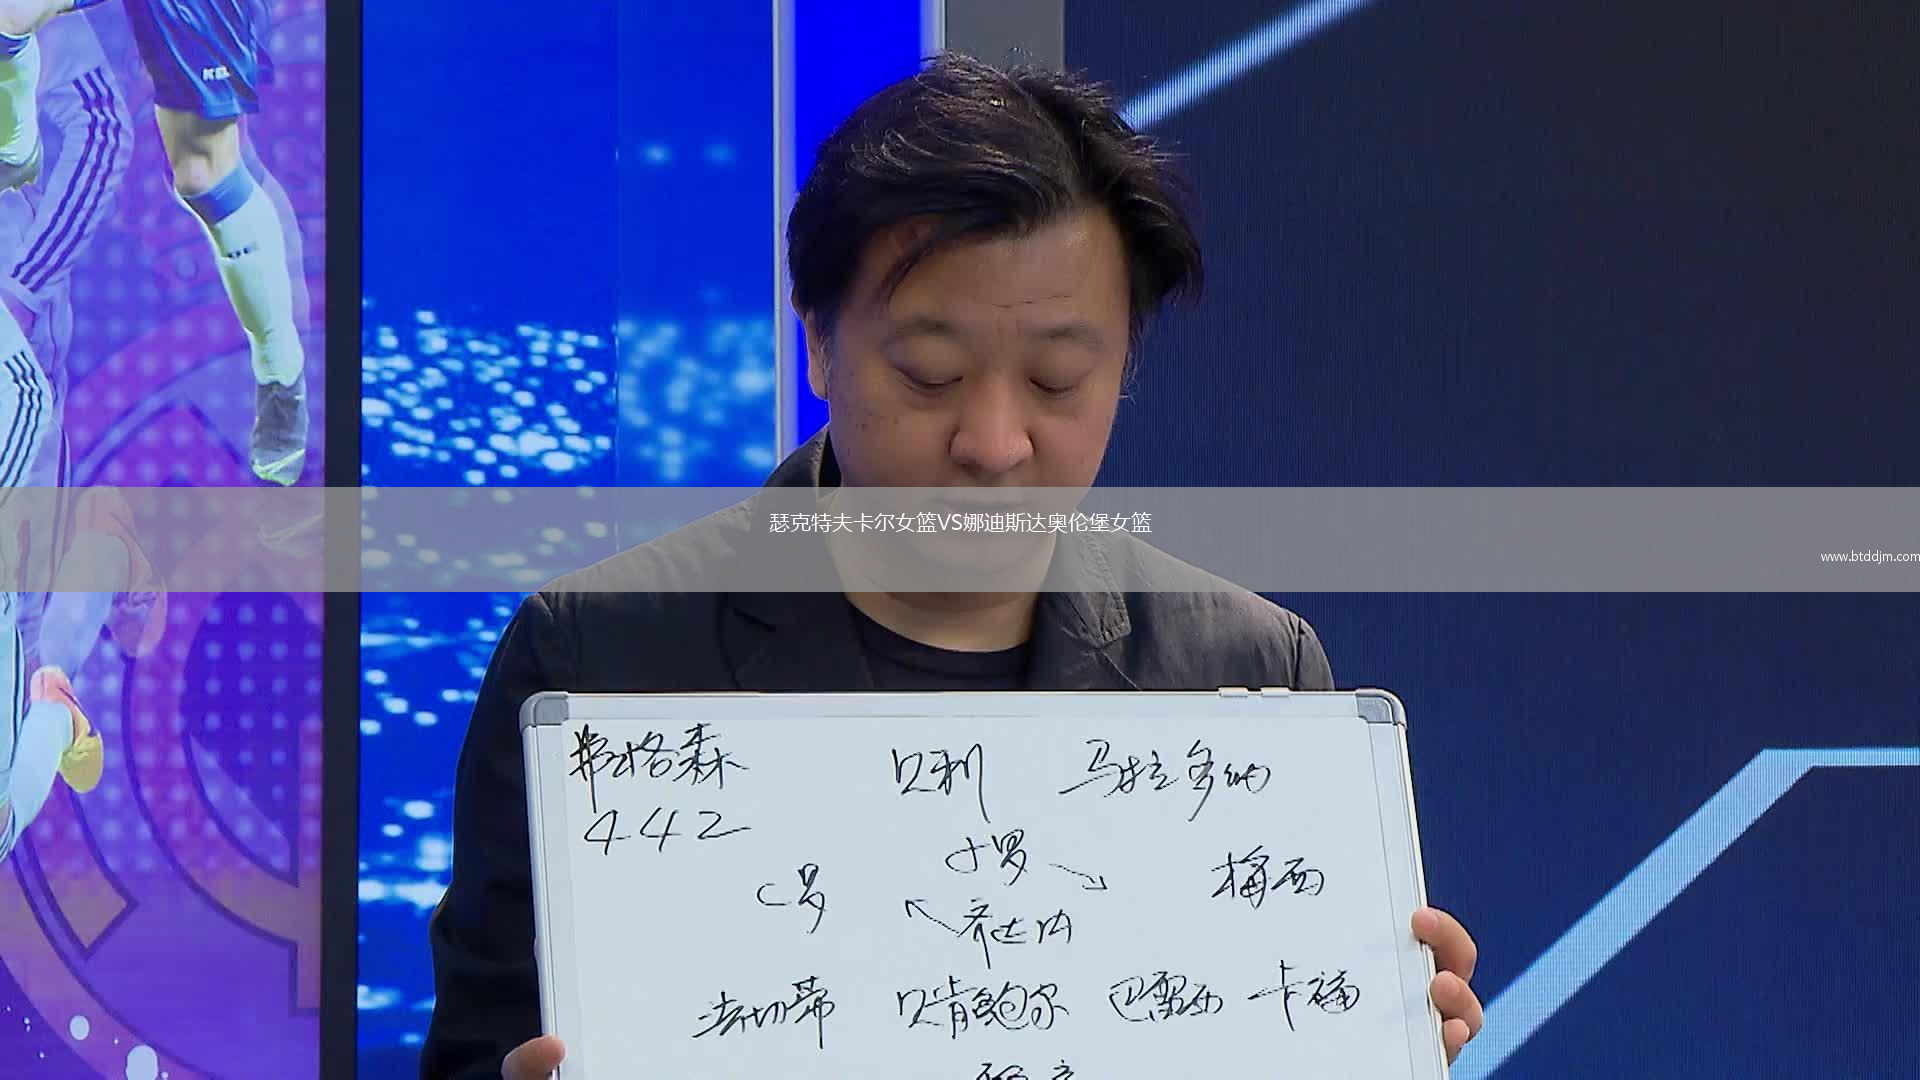 KELME
瑟克特夫卡尔女篮VS娜迪斯达奥伦堡女篮
www.btddjm.com
弗格森 贝利 马拉多纳
442
小罗
C罗 梅西
齐达内
法切蒂 贝肯鲍尔 巴雷西 卡福